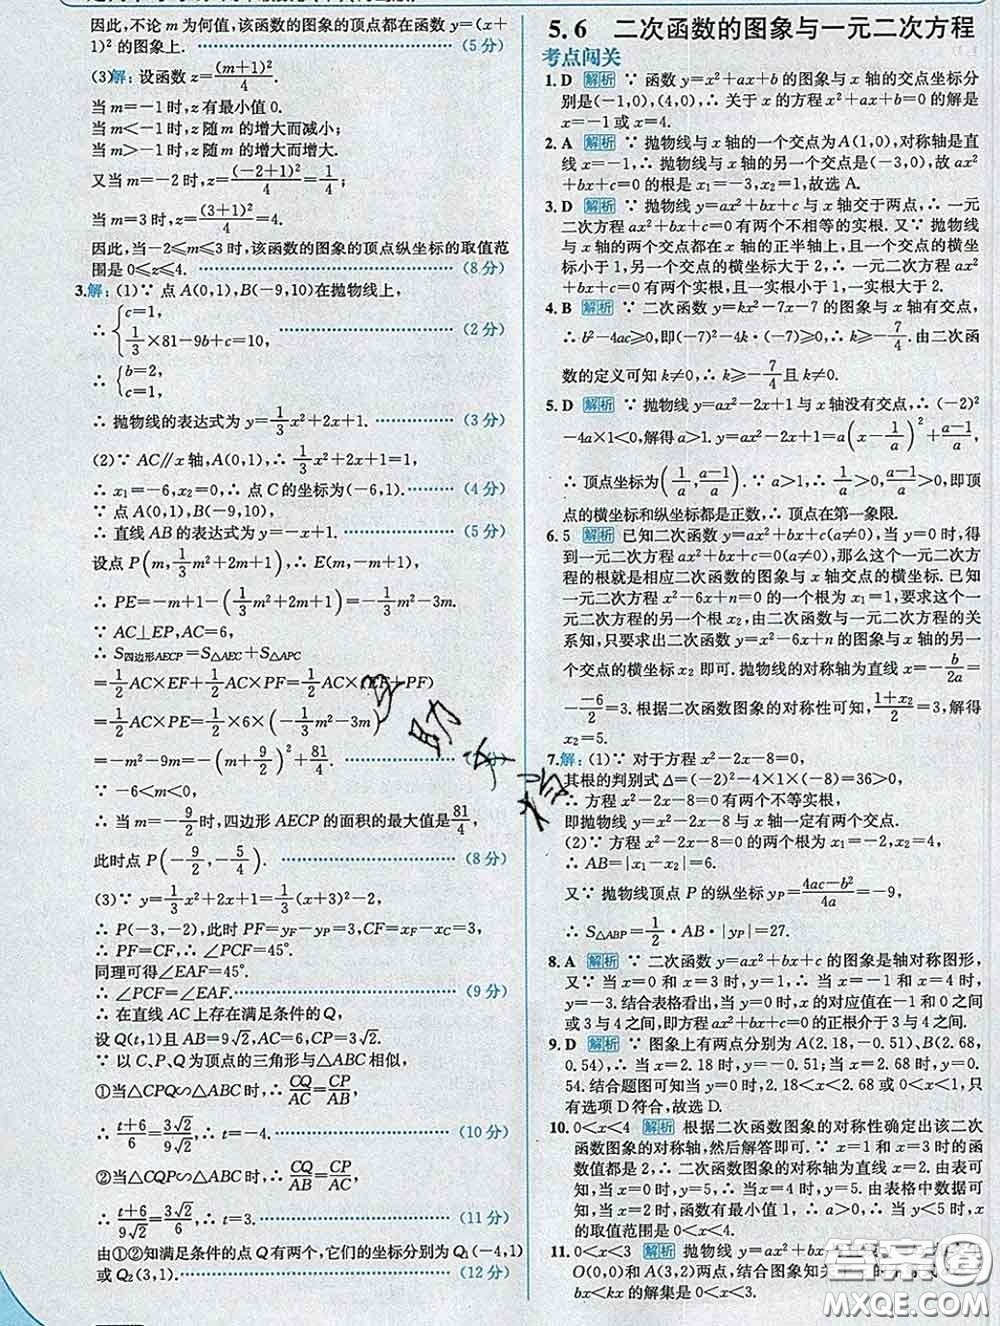 因此,不论m为何值,该函数的图象的顶点都在函数y=(x+
1)²的图象上. (5分)
(3)解:设函数z=(m+1)²/4.
当m=-1时,z有最小值0.
当m<-1时,z随m的增大而减小;
当m>-1时,z随m的增大而增大.
又当m=-2时,z=(-2+1)²/4=1/4;
当m=3时,z=(3+1)²/4=4.
因此,当-2≤m≤3时,该函数的图象的顶点纵坐标的取值范
围是0≤z≤4. (8分)
3.解:(1)∵点A(0,1),B(-9,10)在抛物线上,
∴{c=1, 1/3×81-9b+c=10, (2分)
∴{b=2, c=1,
∴抛物线的表达式为y=1/3x²+2x+1. (3分)
(2)∵AC∥x轴,A(0,1),∴1/3x²+2x+1=1,
∴x₁=-6,x₂=0,∴点C的坐标为(-6,1). (4分)
∵点A(0,1),B(-9,10),
∴直线AB的表达式为y=-x+1. (5分)
设点P(m,1/3m²+2m+1),∴E(m,-m+1),
∴PE=-m+1-(1/3m²+2m+1)=-1/3m²-3m.
∵AC⊥EP,AC=6,
∴S四边形AECP=S△AEC+S△APC
=1/2AC×EF+1/2AC×PF=1/2AC×(PF)
=1/2AC×PE=1/2×6×(-1/3m²-3m)
=-m²-9m=-(m+9/2)²+81/4.
∵-6<m<0,
∴当m=-9/2时,四边形AECP的面积的最大值是81/4,
此时点P(-9/2,-5/4). (8分)
(3)∵y=1/3x²+2x+1=1/3(x+3)²-2,
∴P(-3,-2),此时PF=yF-yP=3,CF=xF-xC=3,
∴PF=CF,∴∠PCF=45°.
同理可得∠EAF=45°.
∴∠PCF=∠EAF. (9分)
∴在直线AC上存在满足条件的Q,
设Q(t,1)且AB=9√2,AC=6,CP=3√2.
∵以C、P、Q为顶点的三角形与△ABC相似,
①当△CPQ∽△ABC时,∴CQ/AC=CP/AB,
∴(t+6)/6=3√2/9√2,∴t=-4. (10分)
②当△CQP∽△ABC时,∴CQ/AB=CP/AC,
∴(t+6)/9√2=3√2/6,∴t=3. (11分)
由①②知满足条件的点Q有两个,它们的坐标分别为Q₁(-4,1)
或Q₂(3,1). (12分)
5.6 二次函数的图象与一元二次方程
考点闯关
1.D 解析 ∵函数y=x²+ax+b的图象与x轴的交点坐标分
别是(-1,0),(4,0),∴关于x的方程x²+ax+b=0的解是
x=-1或x=4.
2.A 解析 ∵抛物线与x轴的一个交点为A(1,0),对称轴是直
线x=-1,∴抛物线与x轴的另一个交点是(-3,0),故ax²
+bx+c=0的根是x₁=-3,x₂=1,故选A.
3.D 解析 ∵抛物线y=ax²+bx+c与x轴交于两点,∴一元
二次方程ax²+bx+c=0有两个不相等的实根.又∵抛物线
与x轴的两个交点都在x轴的正半轴上,且一个交点的横坐
标小于1,另一个交点的横坐标大于2,∴一元二次方程ax²+
bx+c=0有两个正根,且一实根小于1,一实根大于2.
4.B 解析 ∵二次函数y=kx²-7x-7的图象与x轴有交点,
∴b²-4ac≥0,即(-7)²-4k·(-7)≥0,∴k≥-7/4.由二次函
数的定义可知k≠0,∴k≥-7/4且k≠0.
5.D 解析 ∵抛物线y=ax²-2x+1与x轴没有交点,∴(-2)²
-4a×1<0,解得a>1.y=ax²-2x+1=a(x-1/a)²+(a-1)/a,
∴顶点坐标为(1/a,(a-1)/a).∵a>1,∴1/a>0,(a-1)/a>0,即顶
点的横坐标和纵坐标都是正数,∴顶点在第一象限.
6.5 解析 已知二次函数y=ax²+bx+c(a≠0),当y=0时,得
到一元二次方程ax²+bx+c=0(a≠0),那么这个一元二次方
程的根就是相应二次函数的图象与x轴交点的横坐标.已知
一元二次方程x²-6x+n=0的一个根为x₁=1,要求这个一
元二次方程的另一个根x₂,由二次函数与一元二次方程的
关系知,只要求出二次函数y=x²-6x+n的图象与x轴的另一
个交点的横坐标x₂即可.抛物线的对称轴为直线x=-b/2a=
-(-6)/2=3.根据二次函数图象的对称性可知,(1+x₂)/2=3,解得
x₂=5.
7.解:(1)∵对于方程x²-2x-8=0,
其根的判别式Δ=(-2)²-4×1×(-8)=36>0,
∴方程x²-2x-8=0有两个不等实根,
即抛物线y=x²-2x-8与x轴一定有两个交点.
(2)∵方程x²-2x-8=0的两个根为x₁=-2,x₂=4,
∴AB=|x₁-x₂|=6.
又∵抛物线顶点P的纵坐标yP=(4ac-b²)/4a=-9,
∴S△ABP=1/2·AB·|yP|=27.
8.A 解析 ∵二次函数y=ax²+bx+c的图象是轴对称图形,
又∵当x=0和x=3时,y=1,当x=-1和x=4时,
y=-3.结合表格看出,当y=0时,x的对应值在-1和0之间
或3与4之间,即方程ax²+bx+c=0的正根介于3与4之间.
9.D 解析 ∵图象上有两点分别为A(2.18,-0.51)、B(2.68,
0.54),∴当x=2.18时,y=-0.51;当x=2.68时,y=0.
54.结合题图可知当y=0时,2.18<x<2.68或x<0,只
有选项D符合,故选D.
10.0<x<4 解析 根据二次函数图象的对称性确定出该二次
函数图象的对称轴,然后解答即可.∵x=1和x=3时的函
数值都是2,∴二次函数图象的对称轴为直线x=2.由表可
知,当x=0时,y=5,∴当x=4时,y=5.由表格中数据可
知,当x=2时,函数有最小值1,∴当y<5时,x
的取值范围是0<x<4.
11.0<x<3 解析 抛物线y=ax²+bx与直线y=kx交于
O(0,0)和A(3,2)两点,结合图象知关于x的不等式ax²+
bx<kx的解集是0<x<3.
答案圈
MXQE.COM